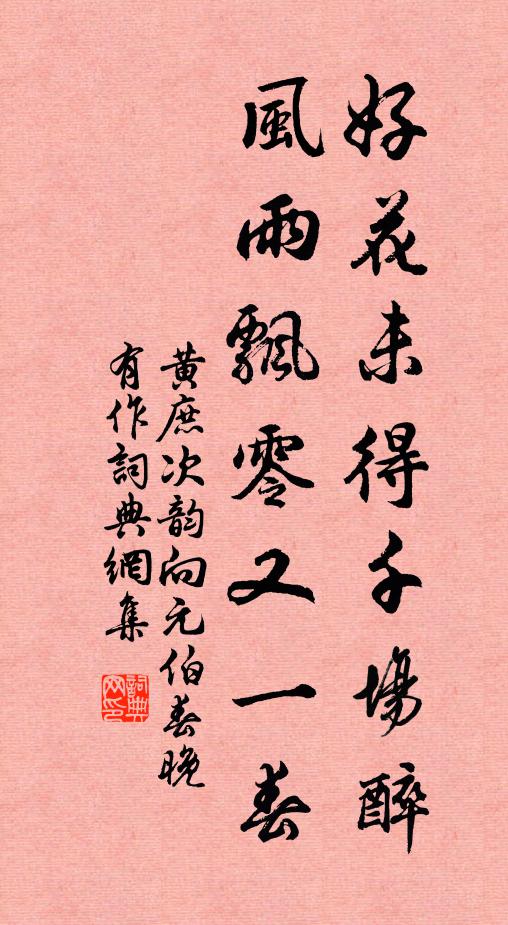 好花未得千場醉
風雨飄零又一春
黄庶次韵向元伯春晚
有作詞典網集
詞典網印